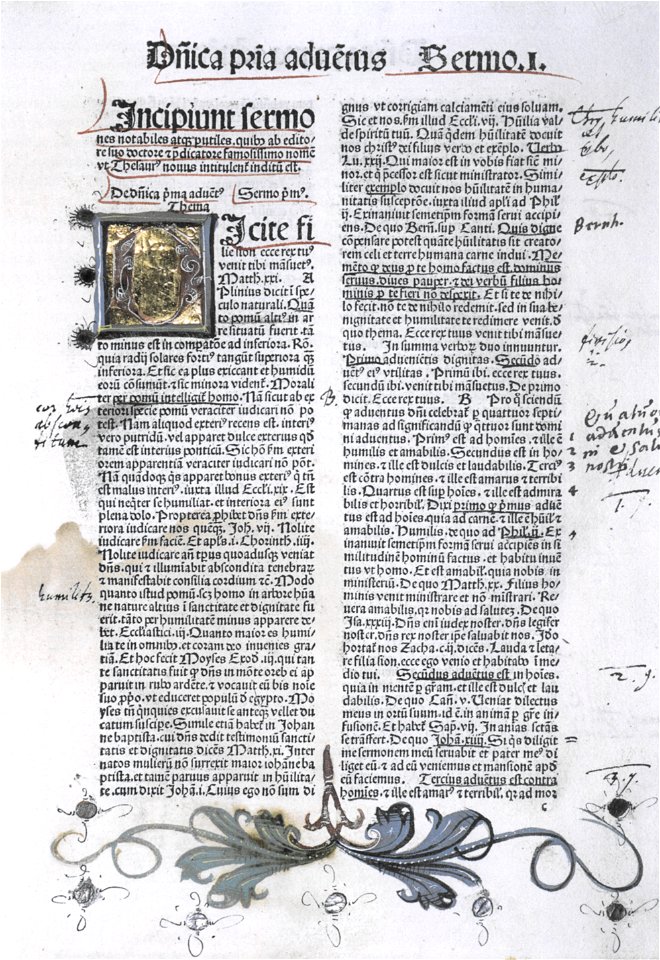 Dñica pria aduẽtus Sermo.I.
Incipiunt sermo
nes notabiles atq; vtiles. quib9 ab edito
re suo doctore τ p̃dicatore famosissimo nomẽ
vt Thesaur9 nouus intitulent̃ inditũ est.
De dñica p̃ma aduẽt9 Sermo p̃m9.
Thema
Icite fi
lie sion ecce rex tu9
venit tibi mãsuet9.
Matth.xxi. A
Plinius dicit ĩ spe
culo naturali. Quã
to pomũ alti9 in ar
re situatũ fuerit. tã
to minus est in compatõe ad inferiora. Rõ.
quia radij solares forti9 tangũt superiora q̃3
inferiora. Et sic ea plus exiccant et humidũ
eorũ cõsumũt. τ sic minora vident̃. Morali
ter per pomũ intelligit̃ homo. Nã sicut ab ex
teriori specie pomũ veraciter iudicari nõ po
test. Nam aliquod exteri9 recens est. interi9
vero putridũ. vel apparet dulce exterius qd̃
tamẽ est interius ponticũ. Sic hõ s̃m exteri
orem apparentiã veraciter iudicari nõ põt.
Nã quãdoq3 q̃s apparet bonus exteri9 q̃ tñ
est malus interi9. iuxta illud Eccl̃i.xix. Est
qui neq̃ter se humiliat. et interiora ei9 sunt
plena dolo. Propterea p̱hibet dñs s̃m ext̃
eriora iudicare nos quẽq3. Joh.vij. Nolite
iudicare s̃m faciẽ. Et apl̃s.i.Chorinth.iiij.
Nolite iudicare añ tp̃us quoadusq3 veniat
dñs. qui τ illumiabit abscondita tenebrar̃
τ manifestabit consilia cordium τc. Modo
quanto istud pomũ. sc3 homo in arbore hũa
ne nature altius ĩ sanctitate et dignitate fu
erit. tãto per humilitatẽ minus apparere de
bet. Ecclesiastici.iij. Quanto maior es humi
lia te in omnib9. et coram deo inuenies gra
tiã. Et hoc fecit Moyses Exod.iij. qui tan
te sanctitatis fuit q̃ dñs in mõte oreb ei ap
paruit in rubo ardẽte. τ vocauit eũ bis noĩe
suo p̱p̃o. vt educeret populũ d̃ egypto. Moy
ses tñ q̃nquies excusauit se anteq3 vellet du
catum suscipe. Simile etiã habet̃ in Johan
ne baptista. cui dñs dedit testimoniũ sancti
tatis et dignitatis dicẽs Matth.xi. Inter
natos mulierũ nõ surrexit maior iohãne ba
ptista. et tamẽ paruus apparuit in hũilita
te. cum dixit Johã.i. Cuius ego nõ sum di
gnus vt corrigiam calciamẽti eius soluam.
Sic et nos. s̃m illud Eccl̃i.vij. Hũilia val
de spiritũ tuũ. Quã q̃dem hũilitatẽ docuit
nos christ9 dei filius verbo et exẽplo. Verbo
Lu.xxij. Qui maior est in vobis fiat sicut mi
nor. et q̃ p̃cessor est sicut ministrator. Simi
liter exemplo docuit nos hũilitatẽ in huma
nitatis susceptõe. iuxta illud apl̃i ad Phil̃.
ij. Exinaniuit semetip̃m formã serui accipi
ens. De quo Berñ. sup Canti. Quis digne
cõpensare potest quãte hũilitatis sit creato
rem celi et terre humana carne indui. Me
mẽto q̃ deus p̱ te homo factus est. dominus
seruus. diues pauper. τ dei verbũ filius ho
minis p̱ te fieri nõ despexit. Et si te de nihi
lo fecit. nõ te de nihilo redemit. sed in sua be
nignitate et humilitate te redimere venit. d̃
quo thema. Ecce rex tuus venit tibi mãsue
tus. In summa verbor̃ duo innuuntur.
Primo aduenientis dignitas. Secũdo ad
uẽt9 ei9 vtilitas. Primũ ibi. ecce rex tuus.
secundũ ibi. venit tibi mãsuetus. De primo
dicit. Ecce rex tuus. B Pro q̃ sciendũ
q̃ aduentus dñi celebrat̃ p̱ quattuor septi
manas ad significandũ q̃ q̃ttuor sunt domi
ni aduentus. Prim9 est ad homĩes. τ ille ẽ
humilis et amabilis. Secundus est in ho
mines. τ ille est dulcis et laudabilis. Terci9
est cõtra homines. τ ille est amarus τ terribi
lis. Quartus est sup hoĩes. τ ille est admira
bilis et horribil̃. Dixi primo q̃ p̃mus aduẽ
tus est ad hoĩes. quia ad carnẽ τ ille ẽ hũil̃ τ
amabilis. Humilis. de quo ad Phil̃.ij. Ex
inanuit semetip̃m formã serui accipiẽs in si
militudinẽ hominũ factus. et habitu inuẽ
tus vt homo. Et est amabil̃. quia nobis in
ministeriũ. De quo Matth.xx. Filius ho
minis venit ministrare et nõ mĩstrari. Re
uera amabilis. q̃3 nobis ad salutez. De quo
Isa.xxxiij. Dñs eñi iudex noster. dñs legifer
noster. dñs rex noster ip̃e saluabit nos. Ido
hortat̃ nos Zacha.c.ij. dicẽs. Lauda τ leta
re filia sion. ecce ego venio et habitabo ĩ me
dio tui. Secũdus aduẽtus est in hoĩes.
quia in mentẽ p̱ gr̃am. et ille est dulc̃ et lau
dabilis. De quo Can̄.v. Veniat dilectus
meus in ortũ suum. id ẽ. in animã p̱ gr̃e in
fusionẽ. Et habet̃ Sap.vij. In anias sctãs
se trãsfert. De quo Johã.xiiij. Si q̃s diligit
me sermonem meũ seruabit et pater me9 di
liget eũ τ ad eũ veniemus et mansionẽ ap̃d
eũ faciemus. Tercius aduẽtus est contra
homĩes. τ ille est amar9 τ terribil̃. q̃3 ad mor
Bernh.
B.
humilitas.
1
2
3
4
2. 9.
3. 9.